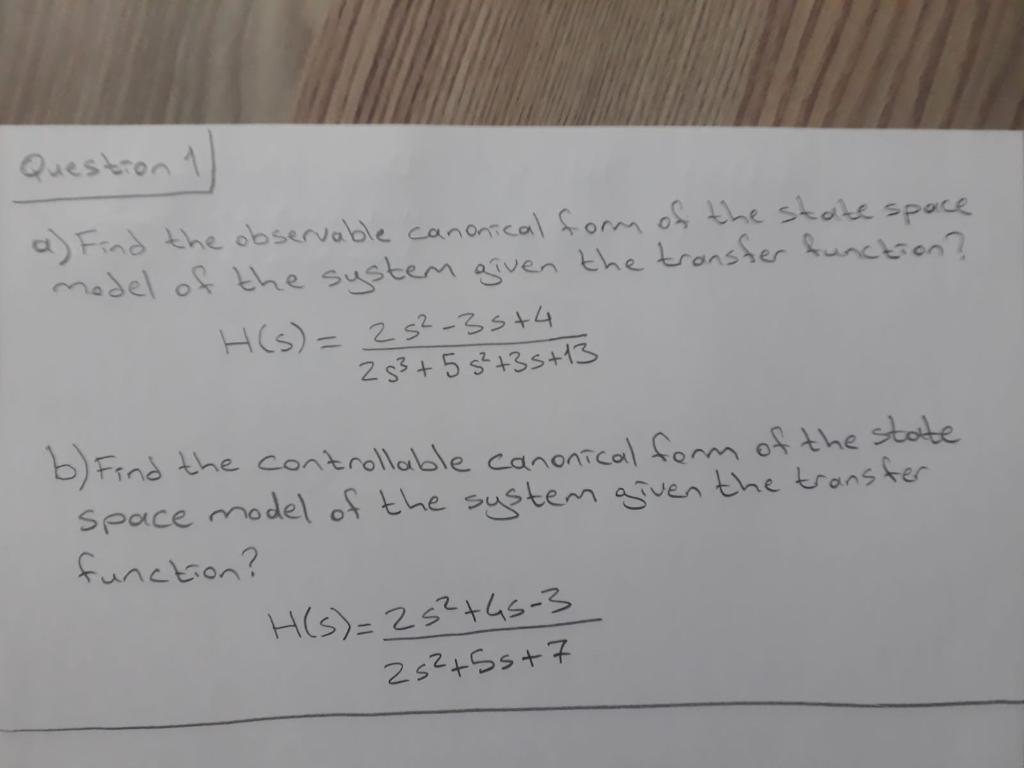 Question 1
a) Find the observable canonical form of the state space
model of the system given the transfer function?
H(s) = (2s² - 3s + 4) / (2s³ + 5s² + 3s + 13)
b) Find the controllable canonical form of the state
space model of the system given the transfer
function?
H(s) = (2s² + 4s - 3) / (2s² + 5s + 7)